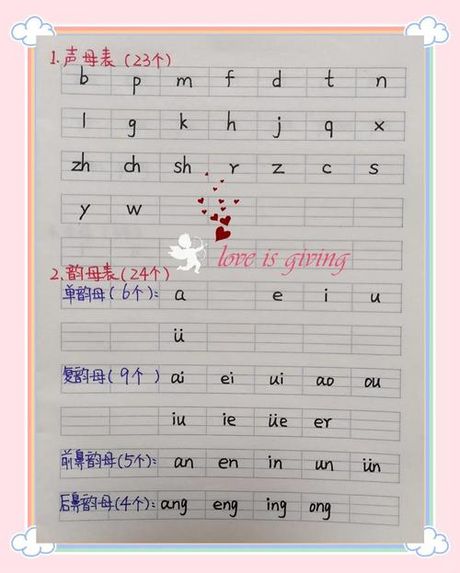 1.声母表(23个)
b p m f d t n
l g k h j q x
zh ch sh r z c s
y w
love is giving
2.韵母表(24个)
单韵母(6个): a e i u
ü
复韵母(9个) ai ei ui ao ou
iu ie üe er
前鼻韵母(5个): an en in un ün
后鼻韵母(4个): ang eng ing ong